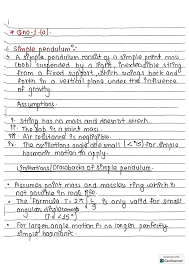 * Q.no-1.(a)
→ Simple pendulum :-
→ A simple pendulum consist of a simple point mass
(bob) suspended by a light, inextensible string
from a fixed support, which swings back and
forth in a vertical plane under the influence
of gravity.
Assumptions
i. String has no mass and doesn't stretch.
ii. The bob is a point mass.
iii. Air resistance is negligible.
iv. The oscillations angle are small (<15°) for simple
harmonic motion to apply.
Limitations/Drawbacks of simple pendulum.
• Assumes point mass and massless string which is
not possible in real life.
• The formula T = 2π√L/g is only valid for small
angular displacements
(θ < 15°)
• For larger angle motion is no longer perfectly
simple harmonic.
CamScanner